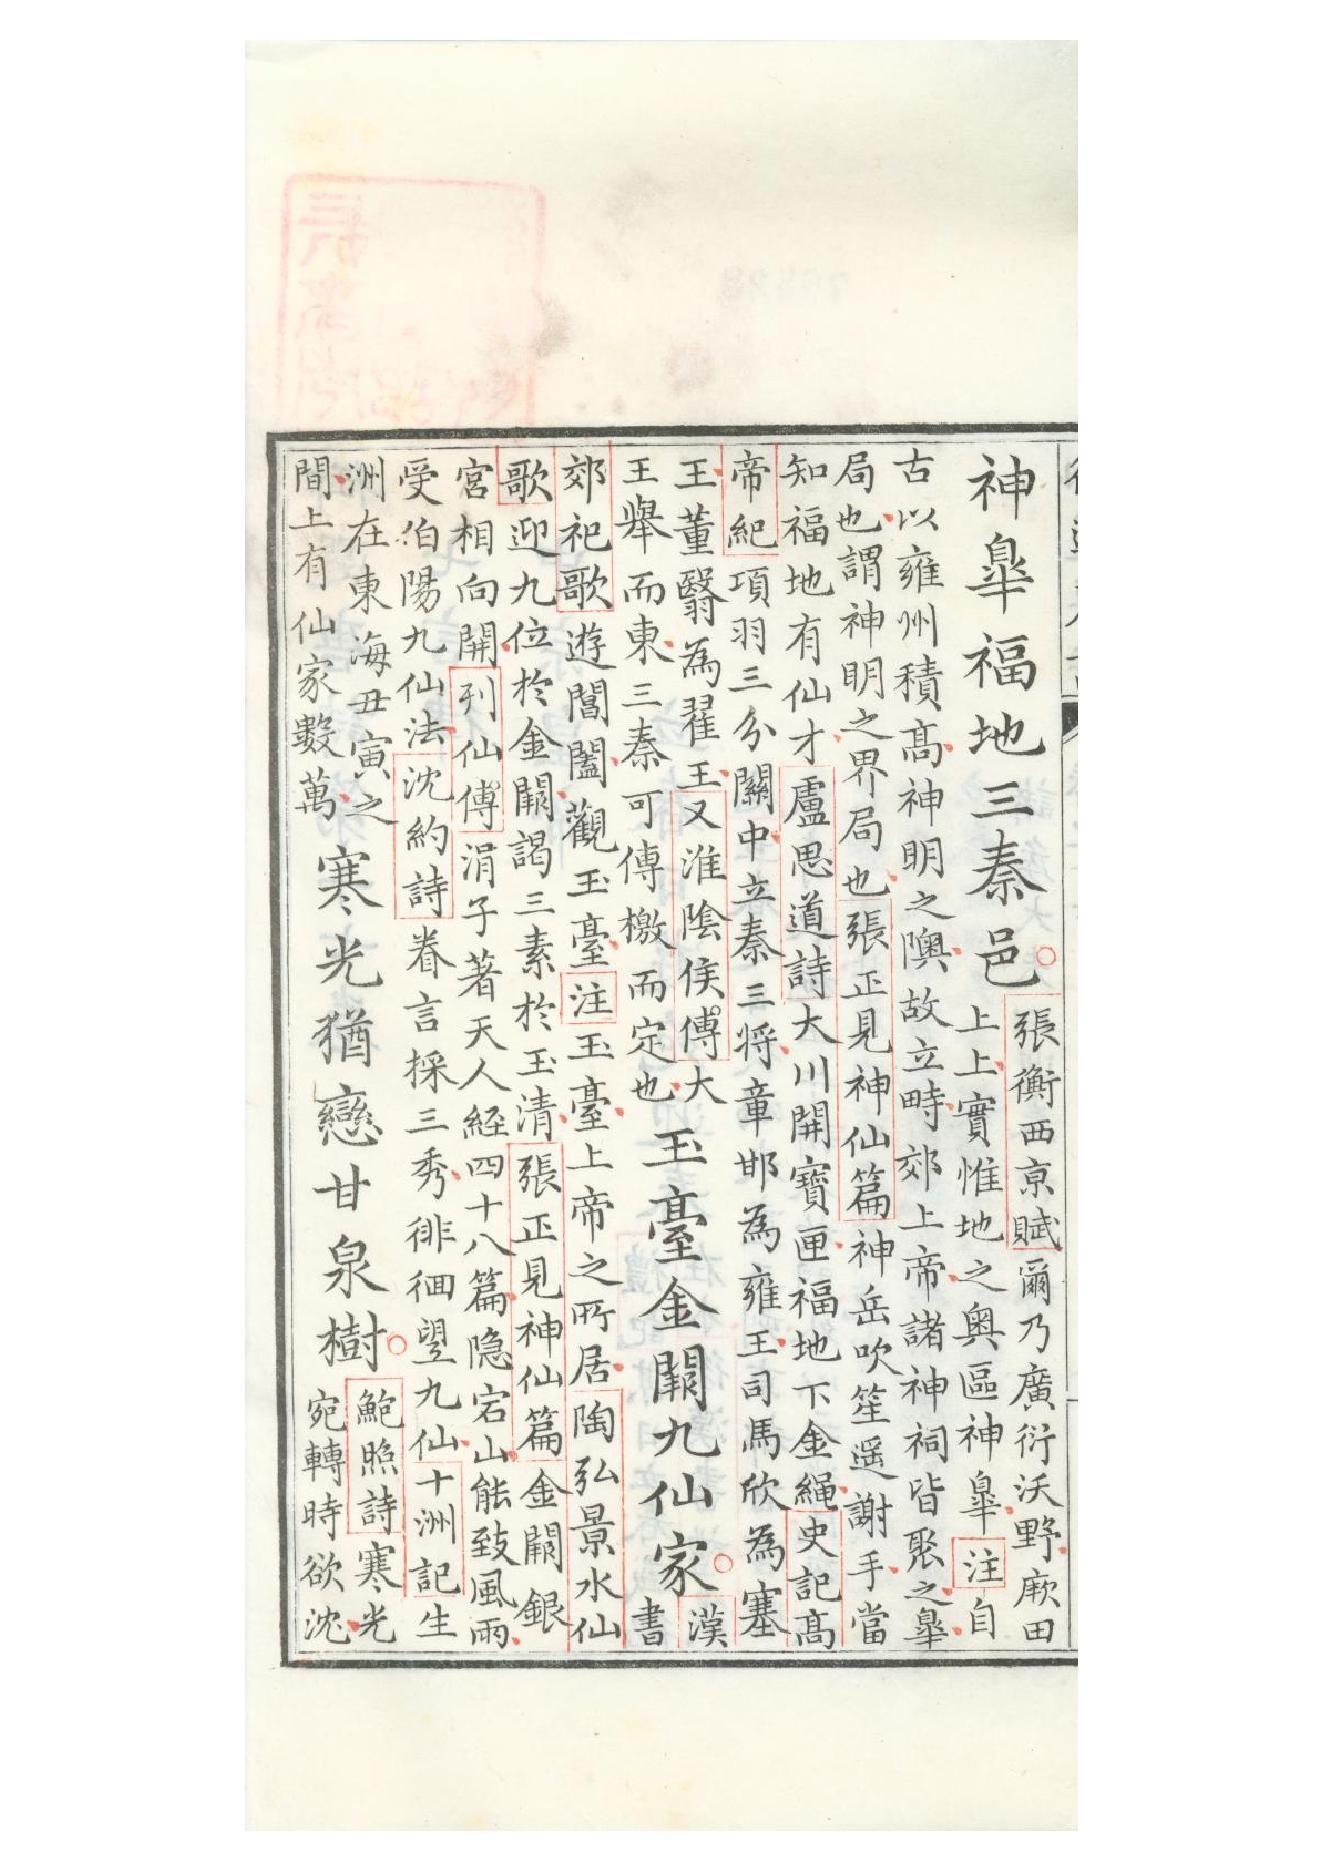 神臯福地三秦邑
張衡西京賦爾乃廣衍沃野厥田
上上實惟地之奧區神臯注自
古以雍州積髙神明之隩故立畤郊上帝諸神祠皆聚之臯
局也謂神明之界局也張正見神仙篇神岳吹笙遥謝手當
知福地有仙才盧思道詩大川開寳匣福地下金繩史記髙
帝紀項羽三分關中立秦三将章邯為雍王司馬欣為塞
王董翳為翟王又淮陰侯傳大
王舉而東三秦可傳檄而定也
玉臺金闕九仙家
漢
書
郊祀歌遊閶闔觀玉臺注玉臺上帝之所居陶弘景水仙
歌迎九位於金闕謁三素於玉清張正見神仙篇金闕銀
宮相向開列仙傳涓子著天人經四十八篇隐宕山能致風雨
受伯陽九仙法沈約詩眷言採三秀徘徊望九仙十洲記生
洲在東海丑寅之
間上有仙家數萬
寒光猶戀甘泉樹
鮑照詩寒光
宛轉時欲沈